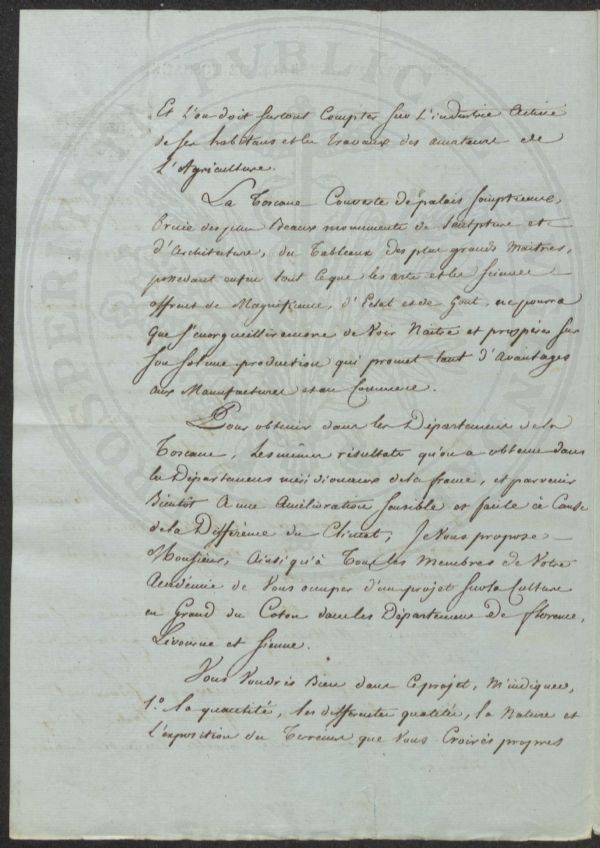 Et l'on doit surtout Compter sur l'industrie Active
de ses habitans et les Travaux des amateurs de
l'Agriculture.
La Toscane Couverte de palais somptueux,
Ornée des plus Beaux monuments de Sculpture et
d'Architecture, du Tableaux des plus grands Maitres,
possedant enfin tout ce que les arts et les Sciences
offrent de Magnificence, d'Eclat et de Gout, ne pourra
que s'enorgueillir encore de Voir Naitre et prospérer sur
son sol une production qui promet tant d'Avantages
aux Manufactures et au Commerce.
Pour obtenir dans les Départemens de la
Toscane, les mêmes résultats qu'on a obtenu dans
les Départemens méridionaux de la france, et parvenir
Bientôt A une Amélioration sensible et facile à Cause
de la Différence du Climat, Je Vous propose
Monsieur, Ainsi qu'à Tous les Membres de Votre
Académie de Vous occuper d'un projet sur la Culture
en Grand du Coton dans les Départemens de florence,
Livourne et Sienne.
Vous Voudrés Bien dans Ce projet, M'indiquer,
1.° la quantité, les differentes qualités, la Nature et
l'exposition du Terrein que Vous Croirés propres
PROSPERITATEM PUBLICAM